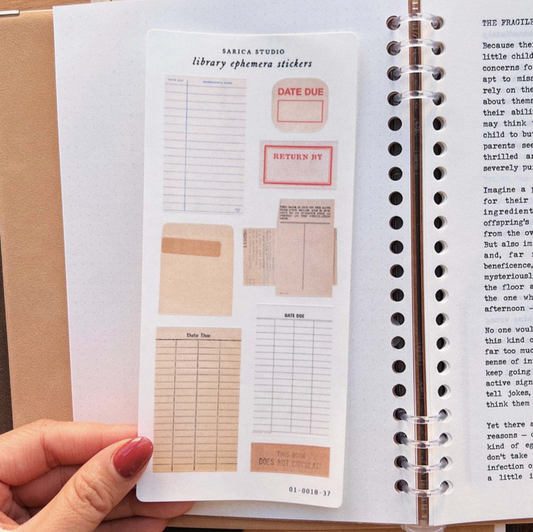 SARICA STUDIO
library ephemera stickers
DATE DUE
RETURN BY
DATE DUE
Date Due
THIS BOOK
DOES NOT CIRCULATE
01-0018-37
THE FRAGILE
Because the
little child
concerns fo
apt to miss
rely on the
about thems
their abili
may think
child to bu
parents see
thrilled an
severely pu
Imagine a p
for their
ingredient
offspring's
from the ov
But also im
and, far
beneficence,
mysteriously
the floor a
the one wh
afternoon —
No one woul
this kind o
far too muc
sense of in
keep going
active sign
tell jokes,
think them
Yet there a
reasons — o
kind of eg
don't take
infection o
a little i